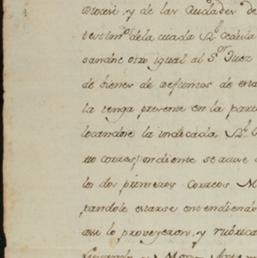 Diocesi, y de las Ciudades de
testim.º de la citada R.l Cedula
sandose otro igual al S.or Juez
de bienes de defuntos de esta
la tenga presente en la par
locandose la indicada R.l C
no correspondiente se acuse
los dos primeros Correos M
pandole estarse entendiendo
assi lo proveyeron, y rubrica